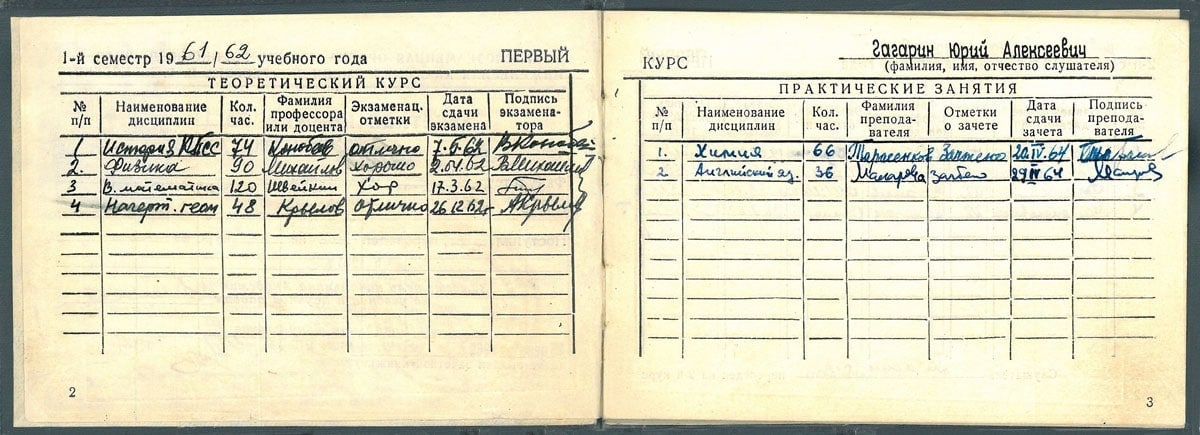 1-й семестр 1961/62 учебного года ПЕРВЫЙ
ТЕОРЕТИЧЕСКИЙ КУРС
№ п/п Наименование дисциплин Кол. час. Фамилия профессора или доцента Экзаменац. отметки Дата сдачи экзамена Подпись экзаменатора
1 История КПСС 74 отлично
2. Физика 90 Михайлов хорошо 2.04.62
3 В. математика 120 Швейкин хор 17.3.62
4 Начерт. геом 48 Крылов отлично 26.12.62г. АКрылов
2
КУРС Гагарин Юрий Алексеевич
(фамилия, имя, отчество слушателя)
ПРАКТИЧЕСКИЕ ЗАНЯТИЯ
№ п/п Наименование дисциплин Кол. час. Фамилия преподавателя Отметки о зачете Дата сдачи зачета Подпись преподавателя
1. Химия 66 Тарасенков Зачтено IV.64
2. Английский яз. 36 Макарова Зачтено 29 IV 64
3